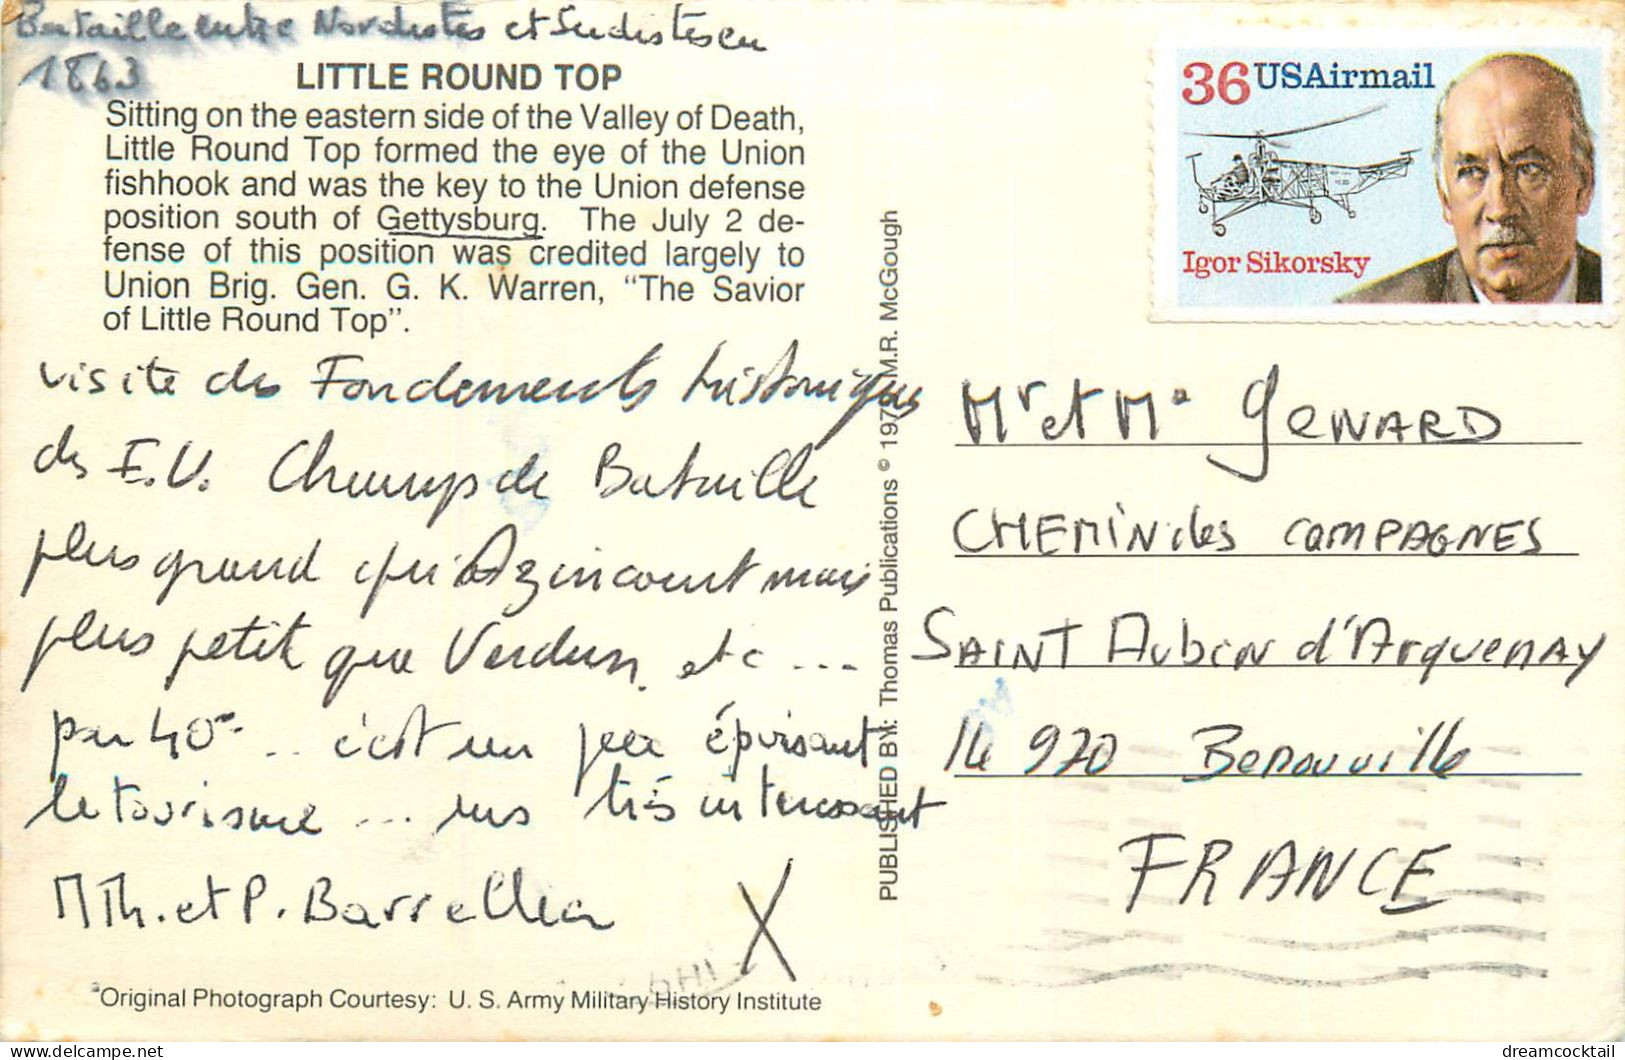 Bataille entre Nordistes et Sudistes en
1863
LITTLE ROUND TOP
Sitting on the eastern side of the Valley of Death,
Little Round Top formed the eye of the Union
fishhook and was the key to the Union defense
position south of Gettysburg. The July 2 de-
fense of this position was credited largely to
Union Brig. Gen. G. K. Warren, "The Savior
of Little Round Top".
visite des Fondements historiques
des E.U. Champs de Bataille
plus grand qu'Azincourt mais
plus petit que Verdun, etc ...
par 40° ... c'est un peu épuisant
le tourisme ... très intéressant
M Th. et P. Barrellier
X
*Original Photograph Courtesy: U. S. Army Military History Institute
PUBLISHED BY: Thomas Publications © 197 M.R. McGough
36 USAirmail
Igor Sikorsky
Mr et Me GENARD
CHEMIN des COMPAGNES
SAINT Aubin d'Arquenay
14 970 Benouville
FRANCE
dreamcocktail